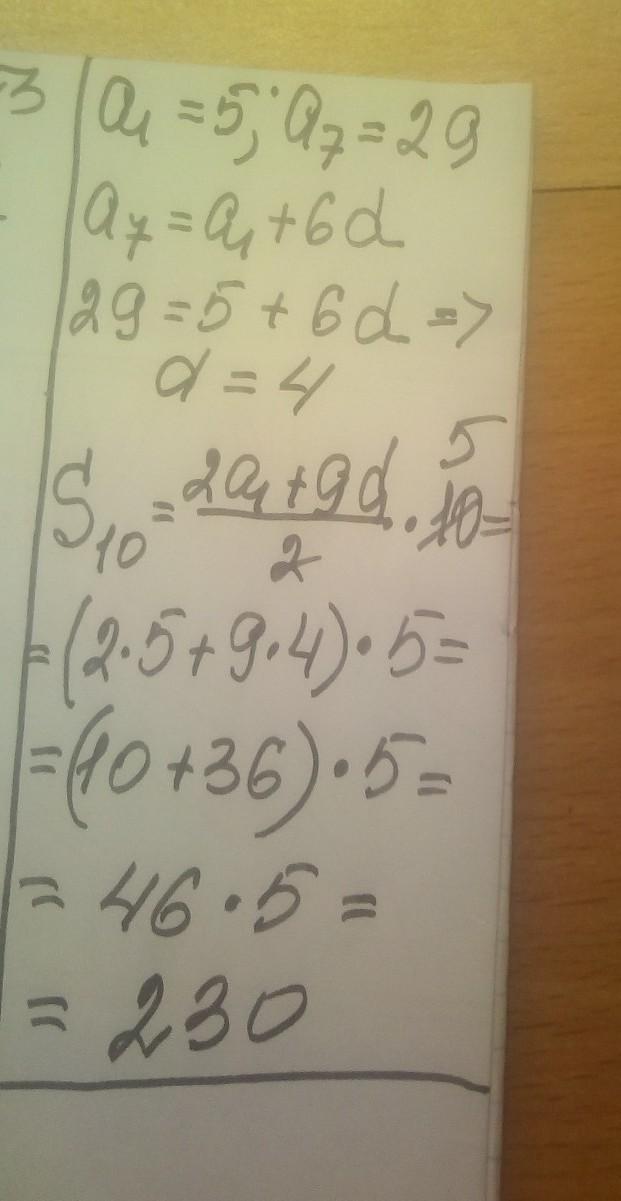 3
a₁ = 5; a₇ = 29
a₇ = a₁ + 6d
29 = 5 + 6d =>
d = 4
S₁₀ = (2a₁ + 9d)/2 · 10 5 =
= (2·5 + 9·4) · 5 =
= (10 + 36) · 5 =
= 46 · 5 =
= 230